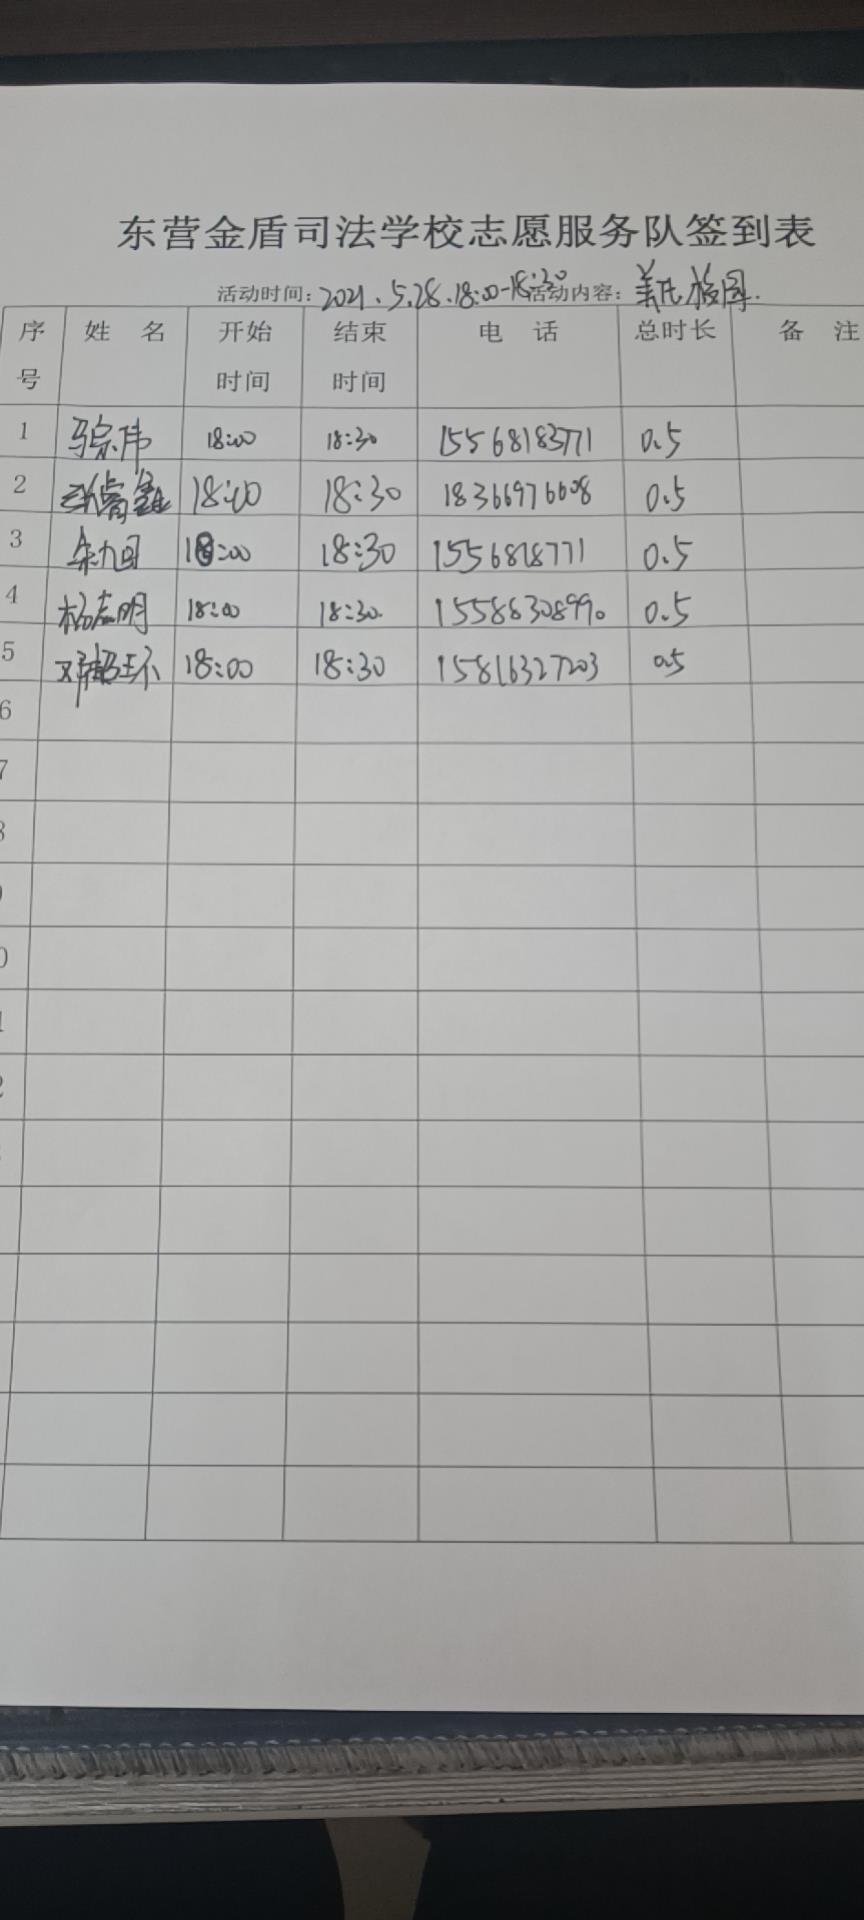 东营金盾司法学校志愿服务队签到表
活动时间：2021.5.28.18:00-18:30 活动内容：美化校园.
序号 姓 名 开始时间 结束时间 电 话 总时长 备 注
1 马宗伟 18:00 18:30 15568183771 0.5
2 18:00 18:30 18366976608 0.5
3 18:00 18:30 1556818771 0.5
4 杨志明 18:00 18:30. 15586308990 0.5
5 18:00 18:30 15816327203 0.5
6
7
8